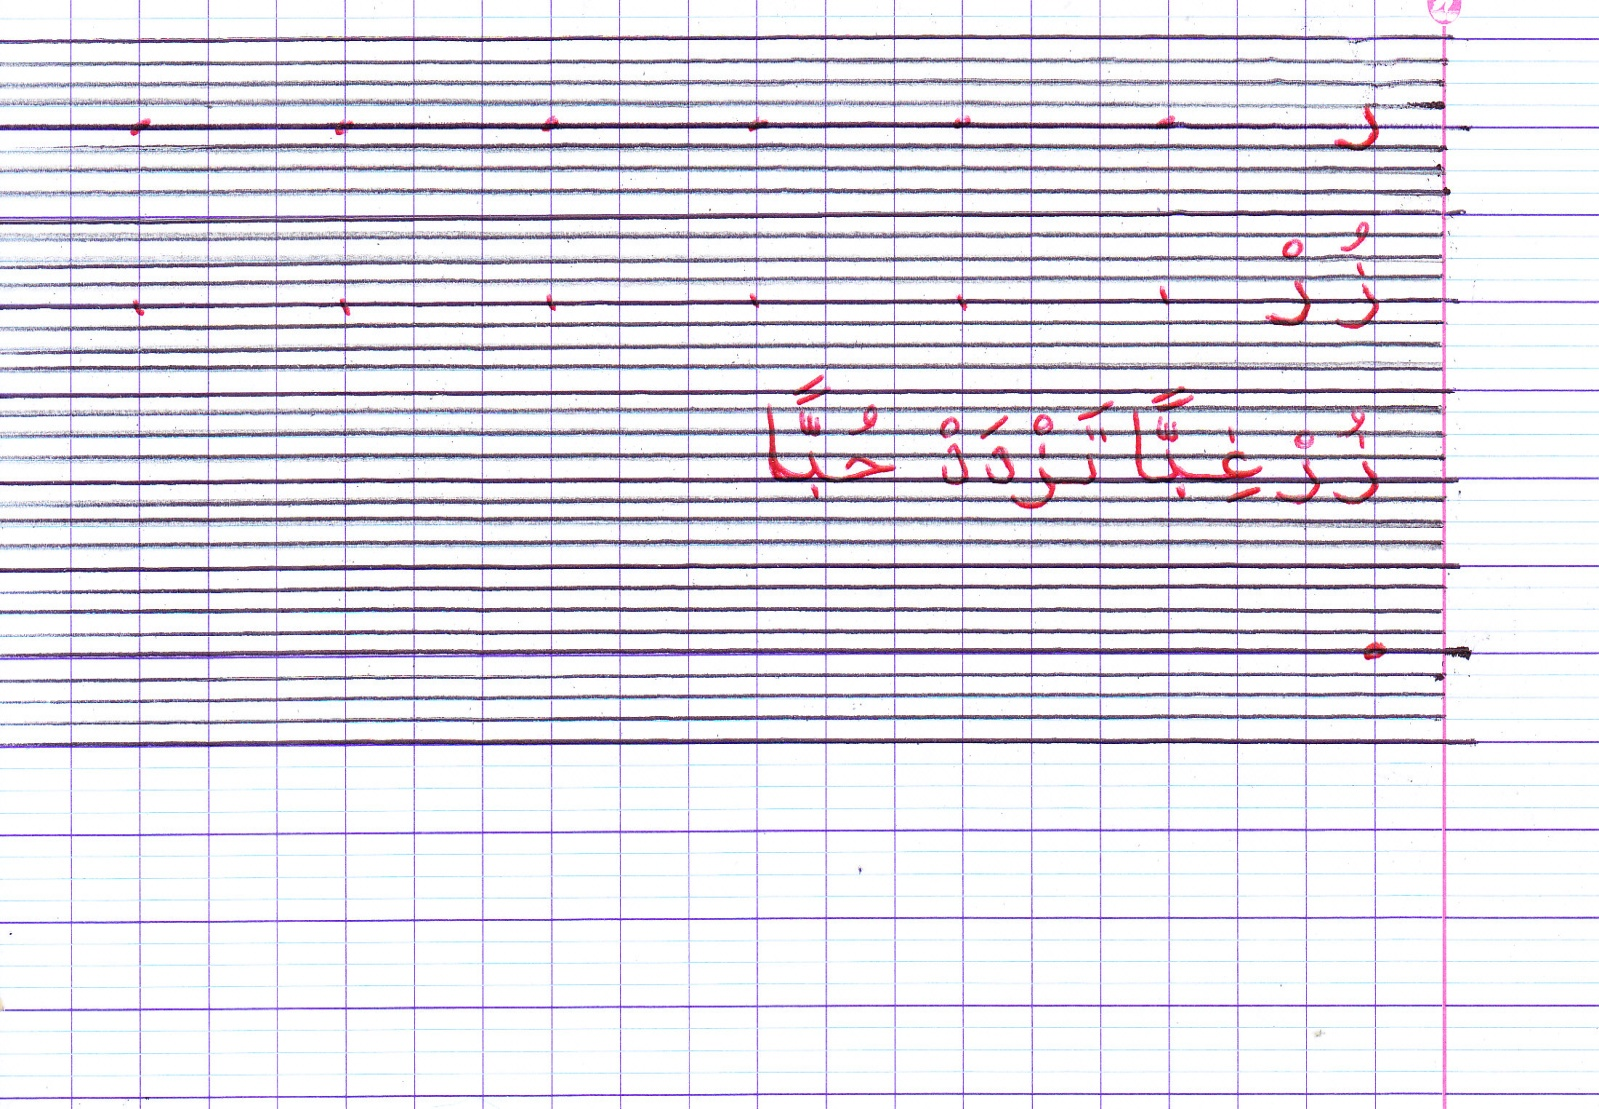 ر
زُرْ
زُرْ غِبًّا تَزْدَدْ حُبًّا